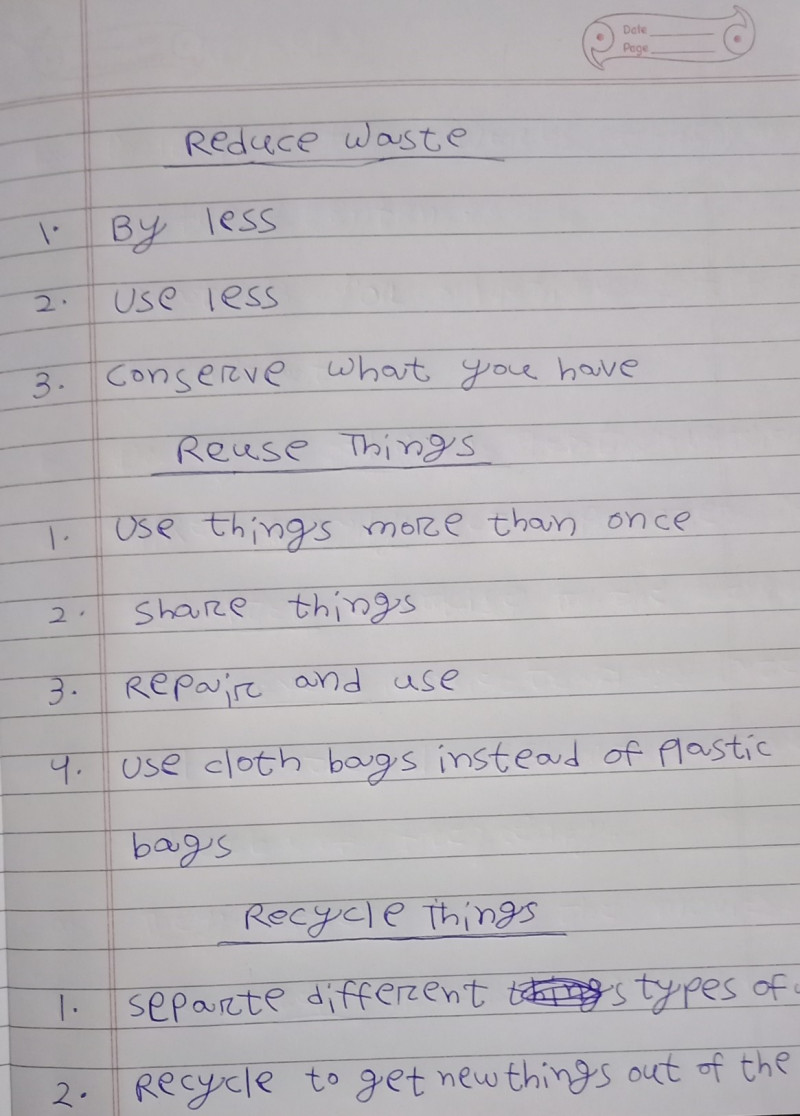 Date
Page
Reduce waste
1. By less
2. Use less
3. Conserve what you have
Reuse Things
1. Use things more than once
2. Share things
3. Repair and use
4. Use cloth bags instead of plastic
bags
Recycle Things
1. Separte different types of
2. Recycle to get new things out of the